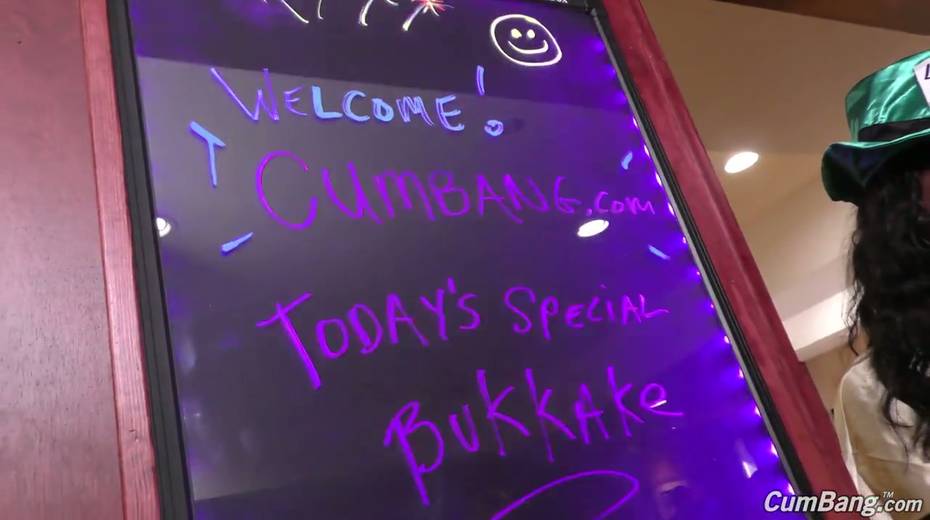 WELCOME!
CUMBANG.com
TODAY'S SPECIAL
BUKKAKe
CumBang™.com